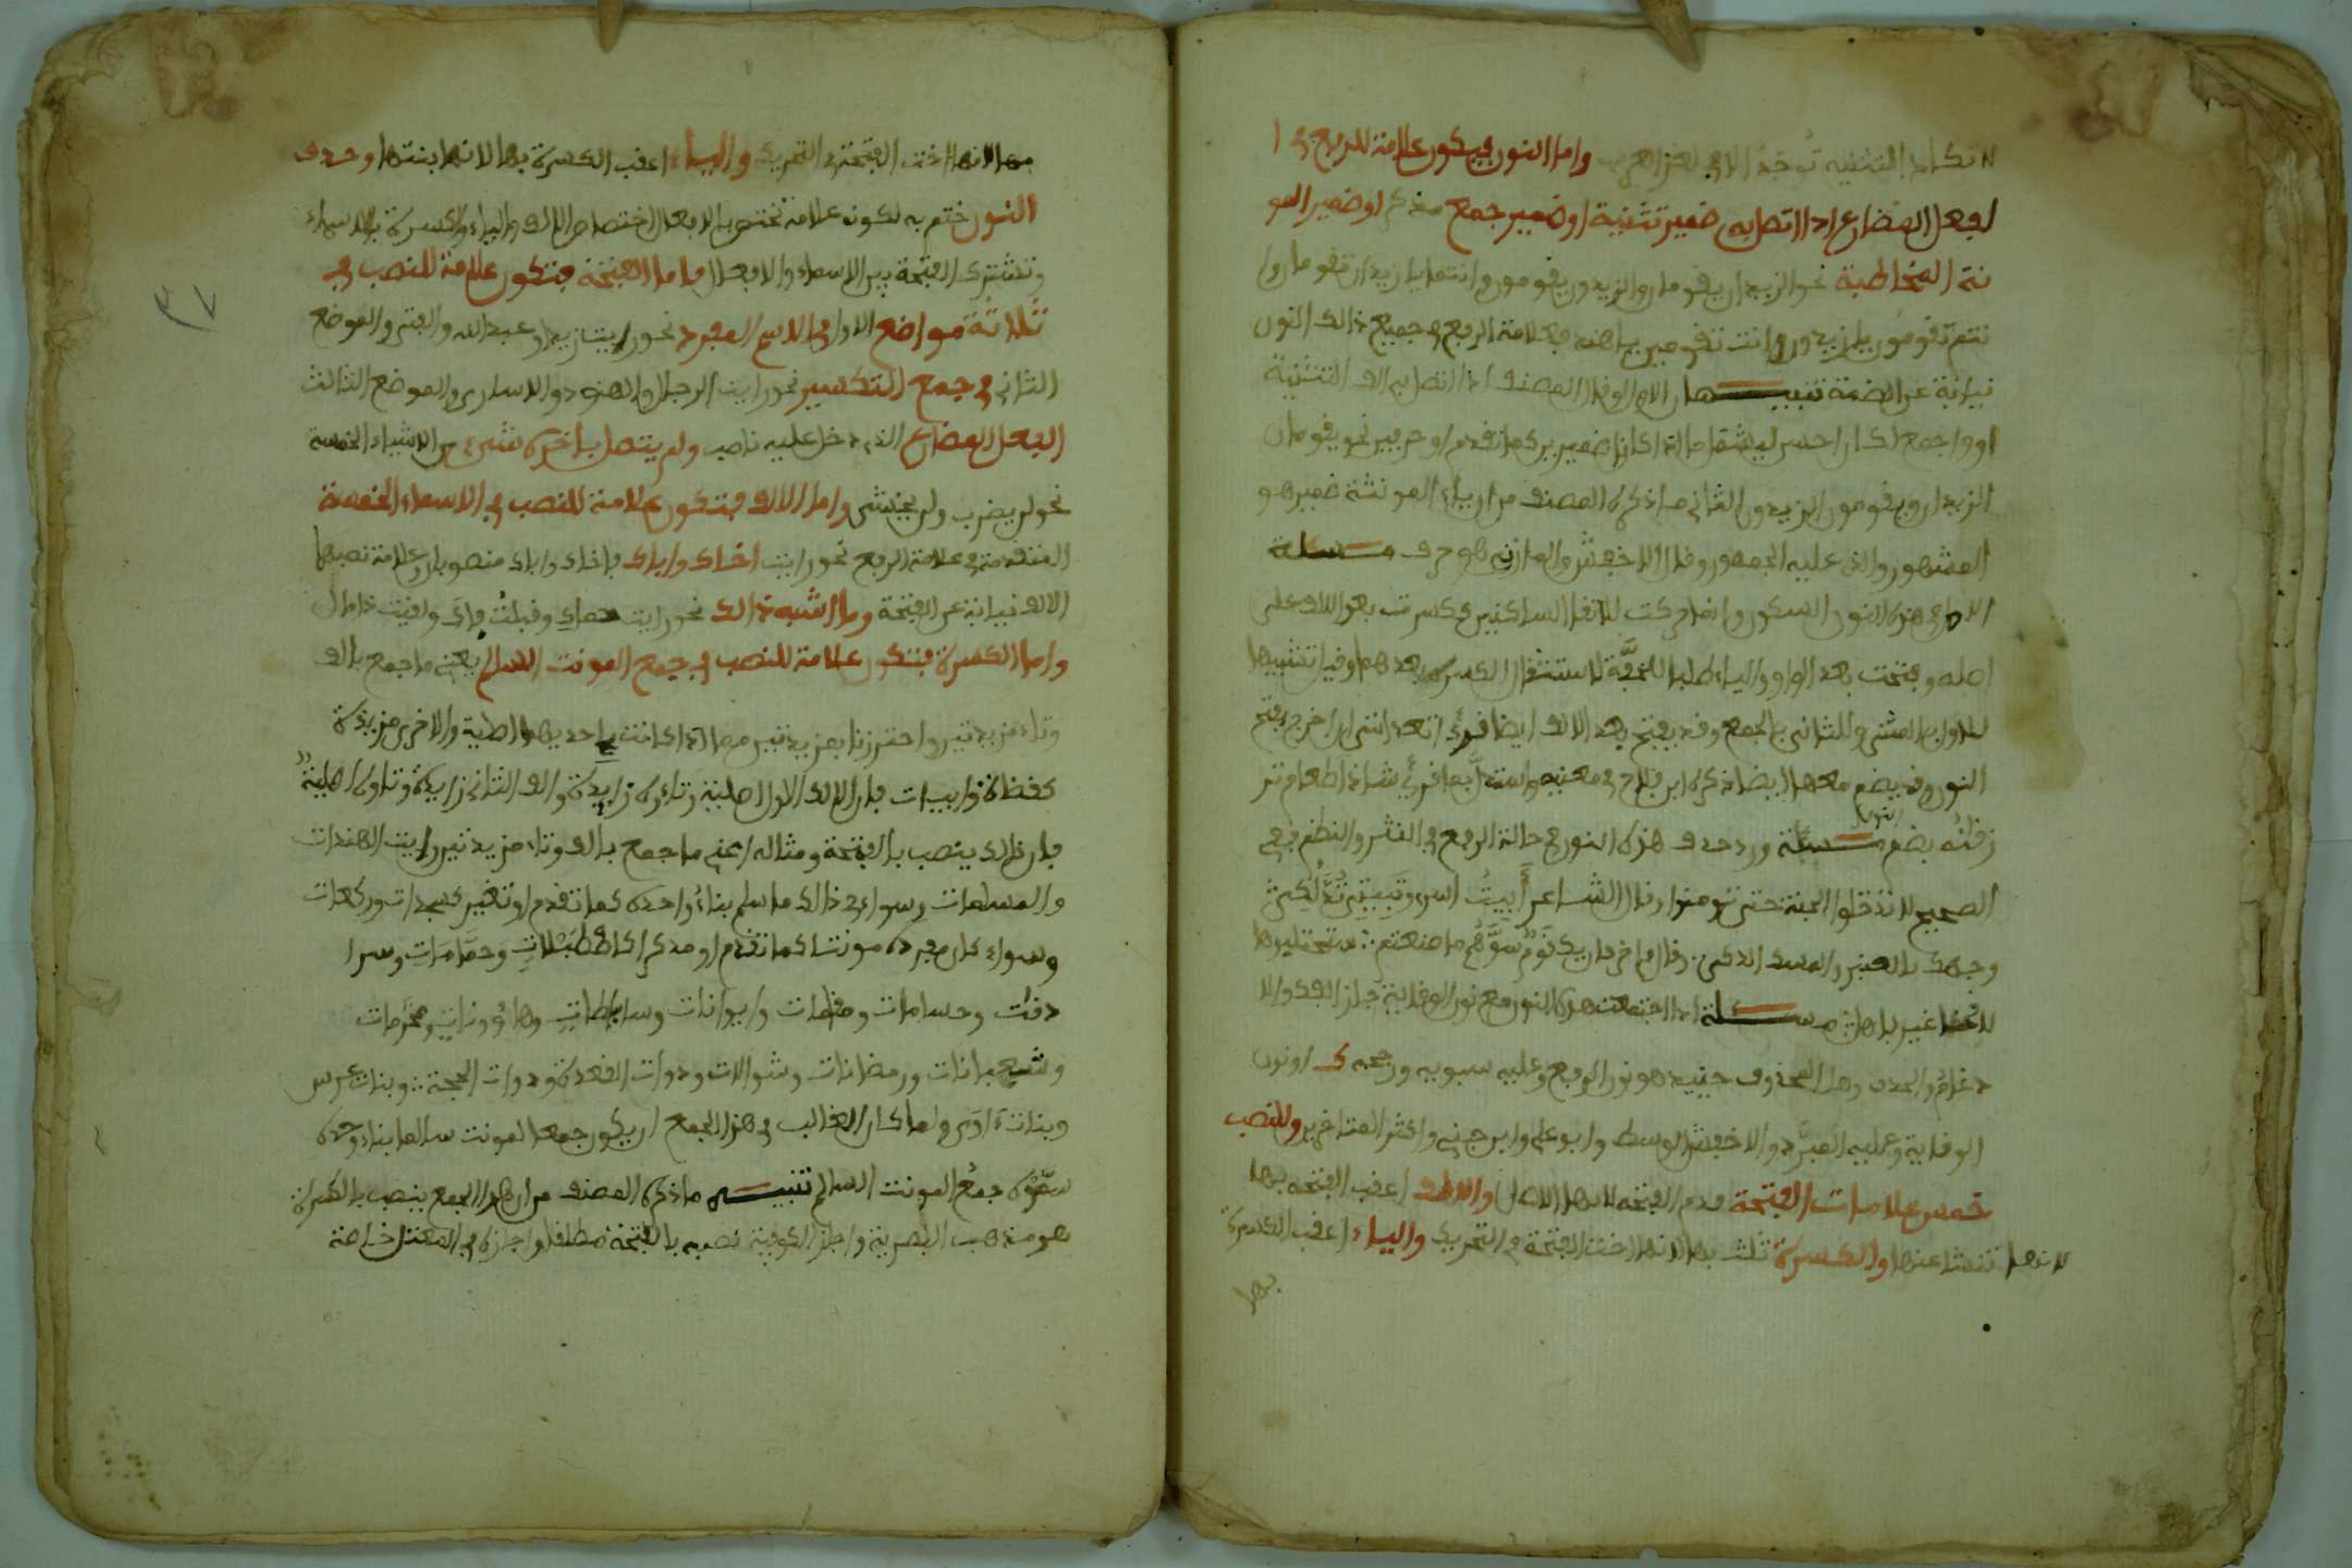 لا تكاد التثنية توجد الا في لغز العرب واما النون فيكون علامة للرفع في ا
لفعل المضارع اذا اتصل به ضمير تثنية او ضمير جمع مذكر او ضمير المو
نثة المخاطبة نحو الزيدان يقومان والزيدون يقومون وانتما يا زيدان تقومان وا
نتم تقومون يا زيدون وانت تقومين يا هند فعلامة الرفع في جميع ذالك النون
نيابة عن الضمة تنبيـــهان الاول لو قال المصنف اذا اتصل به الف التثنية
او واو جمع لكان احسن ليشمل ما اذا كانا ضميرين كما تقدم او حرفين نحو يقومان
الزيدان ويقومون الزيدون الثاني ما ذكره المصنف من ان ياء المونثة ضمير هو
المشهور والذي عليه الجمهور وقال الاخفش والمازني هو حرف مســـئلة
الاصل في هذه النون السكون وانما حركت لالتقا الساكنين فكسرت بعد الالف على
اصله وفتحت بعد الواو والياء طلبا للخفة لاستثقال الكسرة بعدهما وقيل تشبيها
للاول بالمثنى والثاني بالجمع وقد يفتح بعد الالف ايضا قرئ اتعدانني ان اخرج بفتح
النون وقد يضم معها ايضا ذكره ابن فلاح في مغنيه واستدل بما قرئ شاذا طعام تر
زقانه بضم النون مســـئلة ورد حذف هذه النون في حالة الرفع في النثر والنظم ففي
الصحيح لا تدخلوا الجنة حتى تومنوا وقال الشاعر أبيتُ اسري وتَبِيتِي تَدْلُكِي
وجهك بالعنبر والمسك الذكي وقال اخر فان يك قوم سرهم ما صنعتم ستحتلبوها
لاقحا غير باهل مســـئلة اذا اجتمعت هذه النون مع نون الوقاية جاز الفك والا
دغام والحذف وهل المحذوف حينيذ هو نون الرفع وعليه سبويه ورجحه ك او نون
الوقاية وعليه المبرَّد والاخفش الاوسط وابو علي وابن جني واكثر المتاخرين وللنصب
خمس علامات الفتحة قدم الفتحة لانها الاصل والالف اعقب الفتحة بها
لانها تنشا عنها والكسرة ثلث بها لانها اخت الفتحة في التحريك والياء اعقب الكسرة
بها
بها لانها اخت الفتحة في التحريك والياء اعقب الكسرة بها لانها بنتها وحذف
النون ختم به لكونه علامة تختص بالافعال اختصاص الالف والياء والكسرة بالاسماء
وتشترك الفتحة بين الاسماء والافعال فاما الفتحة فتكون علامة للنصب في
ثلاثة مواضع الاول في الاسم المفرد نحو رايت زيدا وعبد الله والفتى والموضع
الثاني في جمع التكسير نحو رايت الرجال والهنود والاسارى والموضع الثالث
الفعل المضارع الذي دخل عليه ناصب ولم يتصل باخره شيء من الاشياء الخمسة
نحو لن يضرب ولن يخشى واما الالف فتكون علامة للنصب في الاسماء الخمسة
المتقدمة في علامة الرفع نحو رايت اخاك واباك فاخاك واباك منصوبان وعلامة نصبهما
الالف نيابة عن الفتحة وما اشبه ذالك نحو رايت حماك وقبلتُ فاك ولقيت ذا مال
واما الكسرة فتكون علامة للنصب في جمع المونث السالم يعني ما جمع بالف
وتاء مزيدتين واحترزنا بمزيدتين مما اذا كانت احديهما اصلية والاخرى مزيدة
كقضاة وابيات فان الالف الاول اصلية وتاءه زايدة والف الثاني زايدة وتاوه اصلية
فان ذالك ينصب بالفتحة ومثاله اعني ما جمع بالف وتاء مزيدتين رايت الهندات
والمسلمات وسواء في ذالك ما سلم بناءُ واحده كما تقدم او تغير كسجدات وركعات
وسواء كان مفرده مونثا كما تقدم او مذكرا كاصطبلاتٍ وحمَّامَاتٍ وسرا
دقات وحسامات ومقامات وايوانات وساباطاتٍ وهاؤوناتٍ ومحرَّمات
وشعبانات ورمضانات وشوالات وذوات القعدة وذوات الحجة وبنات عرس
وبنات اوى ولما كان الغالب في هذا الجمع ان يكون جمعا لمونث سالما بناء واحده
سمَّوْه جمعُ المونث السالم تنبيـــه ما ذكره المصنف من ان هذا الجمع ينصب بالكسرة
هو مذهب البصرية واجاز الكوفية نصبه بالفتحة مطلقا واجازه في المعتل خاصة
٣٧